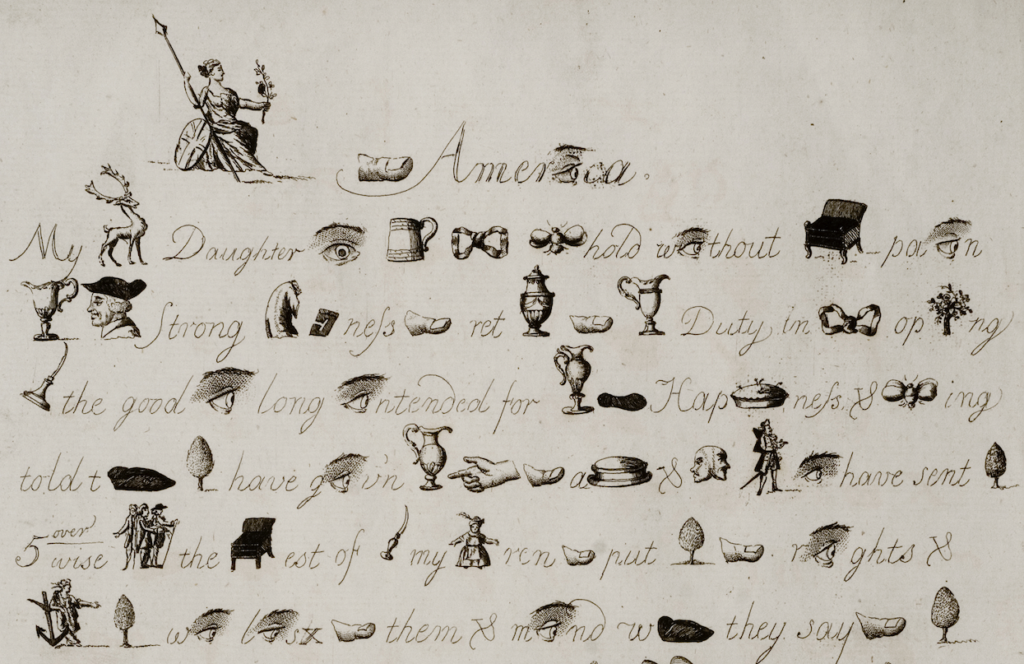 America.
My Daughter hold without -pa n
Strong ness ret Duty in op ng
the good long ntended for Hap ness & ing
told t have g v'n a & have sent
5 over wise the est of my ren put r ghts &
w l st them & m nd w they say